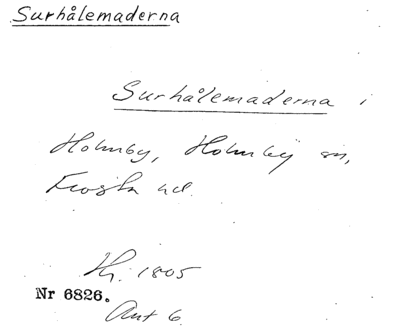 Surhålemaderna
Surhålemaderna i
Holmby, Holmby sn,
Frosta hd.
Hj. 1805
Nr 6826.
Akt 6